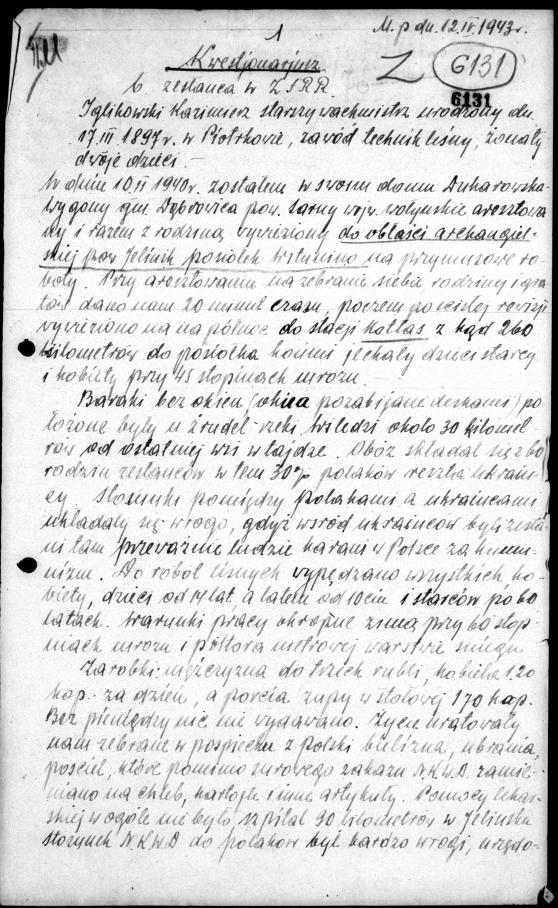 1
M. p dn. 12.IV.1943r.
Kwestjonarjusz
Z 6131
b. zesłańca w Z.S.R.R.
6131
Iglikowski Kazimierz starszy wachmistrz urodzony dn.
17 III 1897r. w Piotrkowie, zawód technik leśny, żonaty
dwoje dzieci. –
W dniu 10.II 1940r. zostałem w swoim domu
wygony gm. Dąbrowica pow. Sarny wojw. wołyńskie aresztowa
ny i razem z rodziną wywieziony do obłaści archangiel-
skiej pow Jelińsk posiołek na przymusowe ro-
boty. Przy aresztowaniu na zebranie siebie rodziny i gra
tów dano nam 20 minut czasu, poczem po ścisłej rewizji
wywieziono na na północ do stacji Kotłas z kąd 260
kilometrów do posiołka końmi jechały dzieci starcy
i kobiety przy 45 stopniach mrozu. –
Baraki bez okien (okna pozabijane deskami) po
łożone były u źrudeł rzeki około 30 kilomet-
rów od ostatniej wsi w tajdze. Obóz składał się z 60
rodzin zesłańców w tem 30% polaków reszta ukraiń-
cy Stosunki pomiędzy polakami a ukraincami
układały się wrogo, gdyż wsród ukrainców byli zesła
ni tam przeważnie ludzie karani w Polsce za komu-
nizm. Do robót leśnych wypędzano wszystkich ko-
biety, dzieci od 14 lat, a latem od 10ciu i starców po 60
latach. Warunki pracy okropne zimą przy 60 stop-
niach mrozu i półtora metrowej warstwie śniegu
Zarobki: mężczyzna do trzich rubli, kobieta 1.20
kop. za dzień, a porcia zupy w stołowej 170 kap.
Bez pieniędzy nic nie wydawano. Życie uratowały
nam zebrane w pospiechu z polski bielizna, ubrania,
pościel, które pomimo surowego zakazu N.K.W.D. zamie-
niano na chleb, kartofle i inne artykuły. Pomocy lekar-
skiej wogóle nie było szpital 90 kilometrów w Jelińsku
stosunek N.K.W.D do polaków był bardzo wrogi, urzędo-